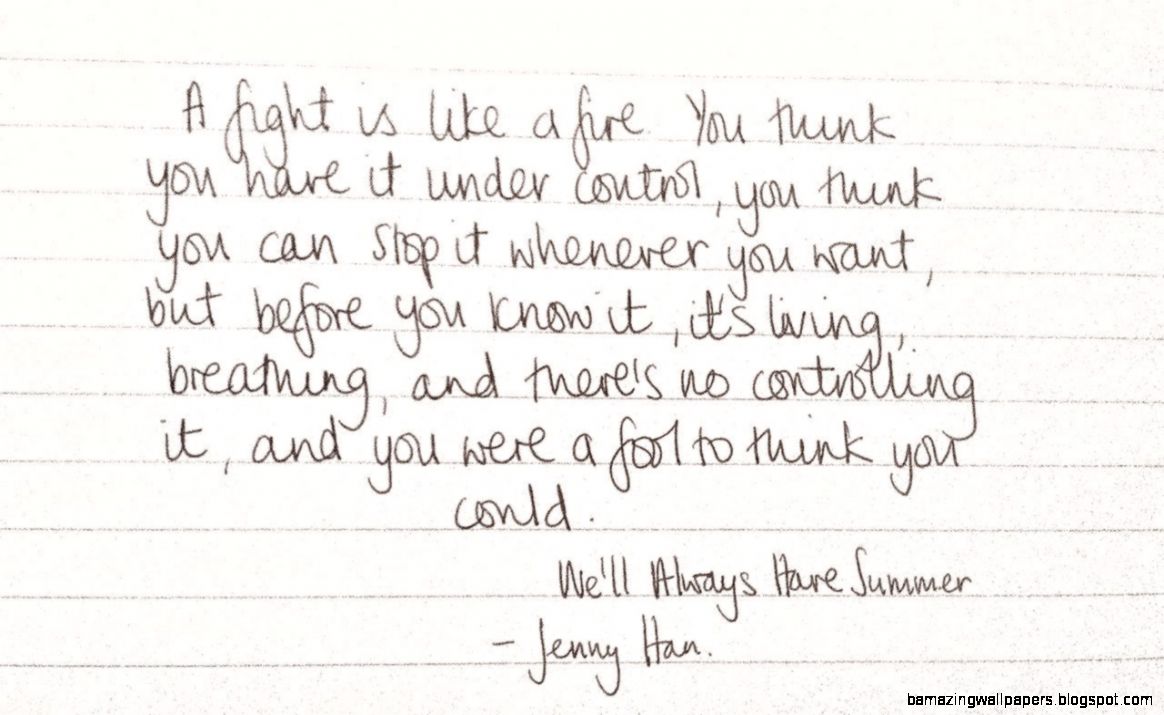 A fight is like a fire. You think
you have it under control, you think
you can stop it whenever you want,
but before you know it, it's living,
breathing, and there's no controlling
it, and you were a fool to think you
could.
We'll Always Have Summer
- Jenny Han.
bamazingwallpapers.blogspot.com